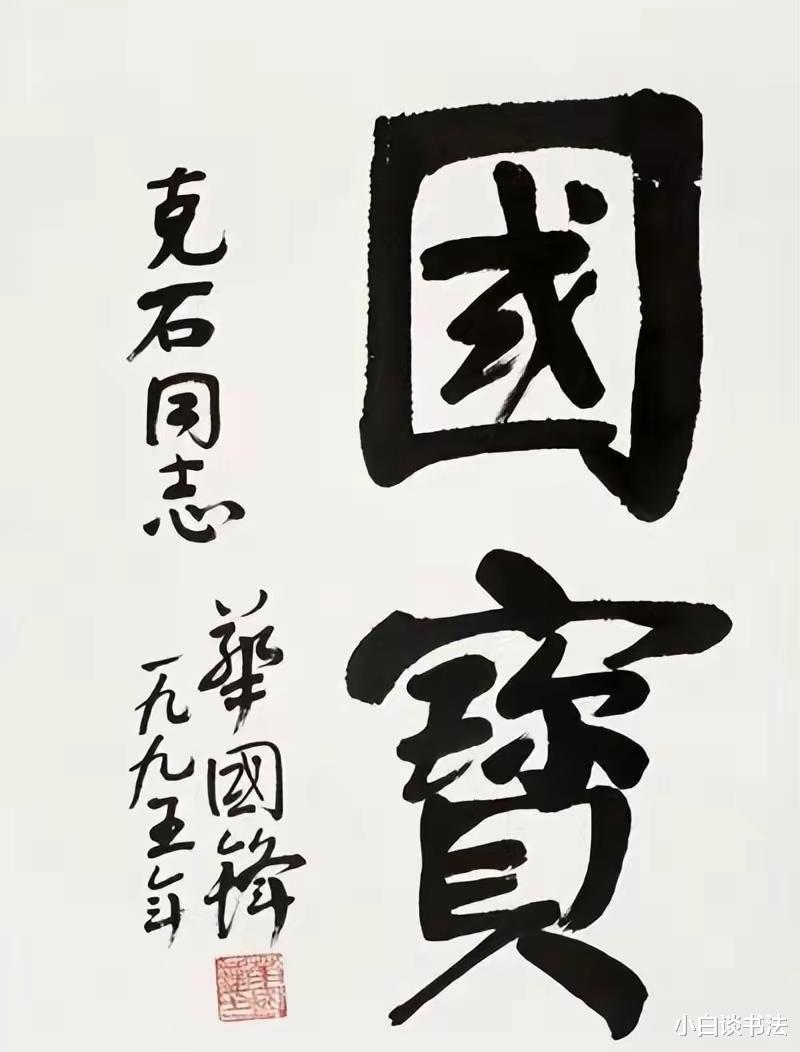 國寶
克石同志
華國鋒
一九九五年
小白谈书法